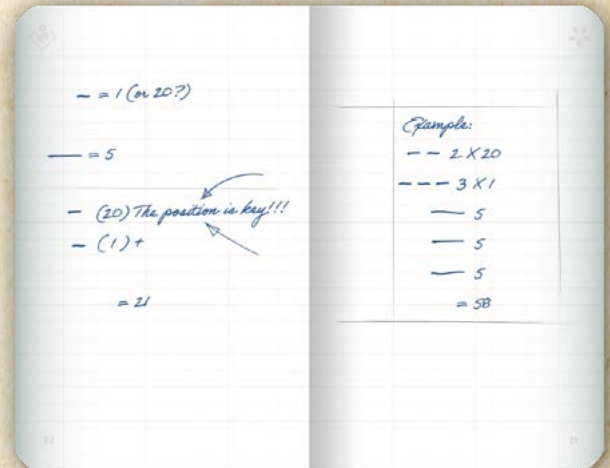 — = 1 (or 20?)
—— = 5
— (20) The position is key!!!
— (1) +
= 21
Example:
— — 2 X 20
— — — 3 X 1
—— 5
—— 5
—— 5
= 58